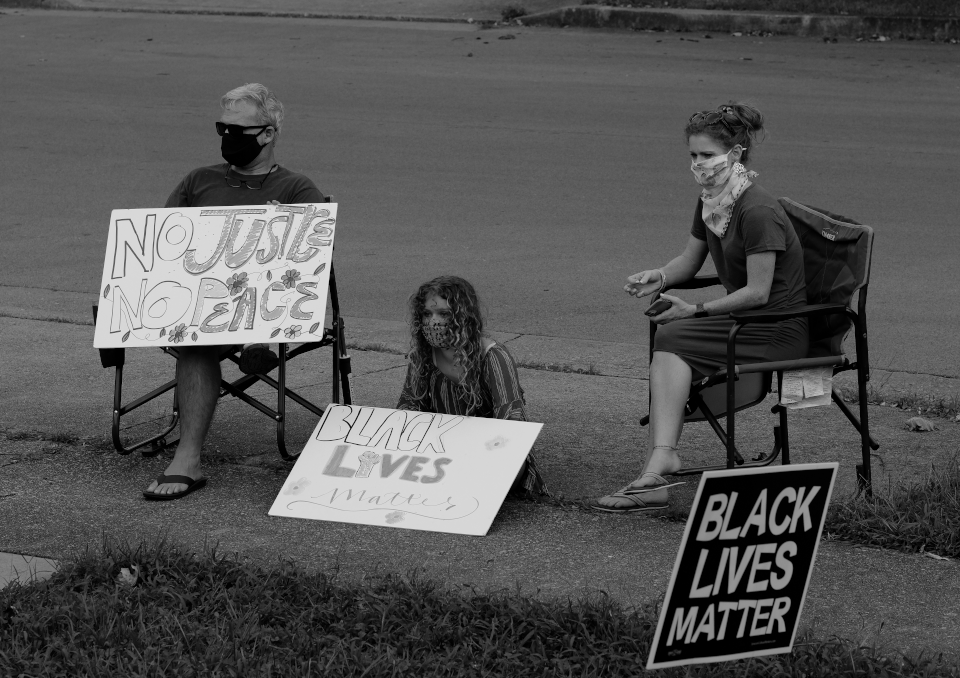 NO JUSTICE
NO PEACE
BLACK
LIVES
Matter
BLACK
LIVES
MATTER